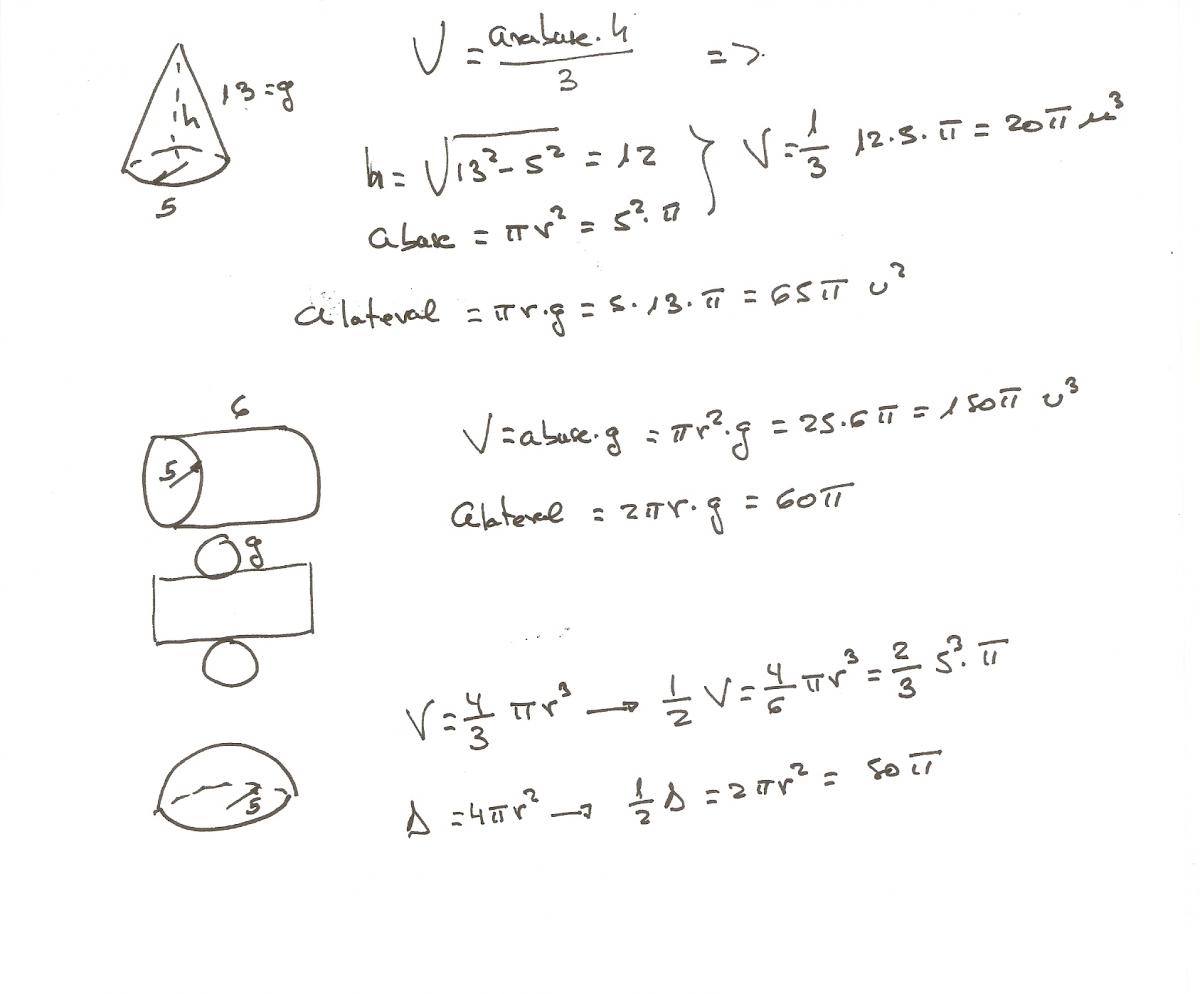 V = area base · h / 3 =>
13 = g
h
5
h = √(13² - 5²) = 12
a base = πr² = 5² · π
} V = 1/3 12 · 5 · π = 20π u³
a lateral = πr·g = 5 · 13 · π = 65π u²
6
5
V = a base · g = πr² · g = 25 · 6π = 150π u³
a lateral = 2πr · g = 60π
g
V = 4/3 πr³ → 1/2 V = 4/6 πr³ = 2/3 5³ · π
5
A = 4πr² → 1/2 A = 2πr² = 50π